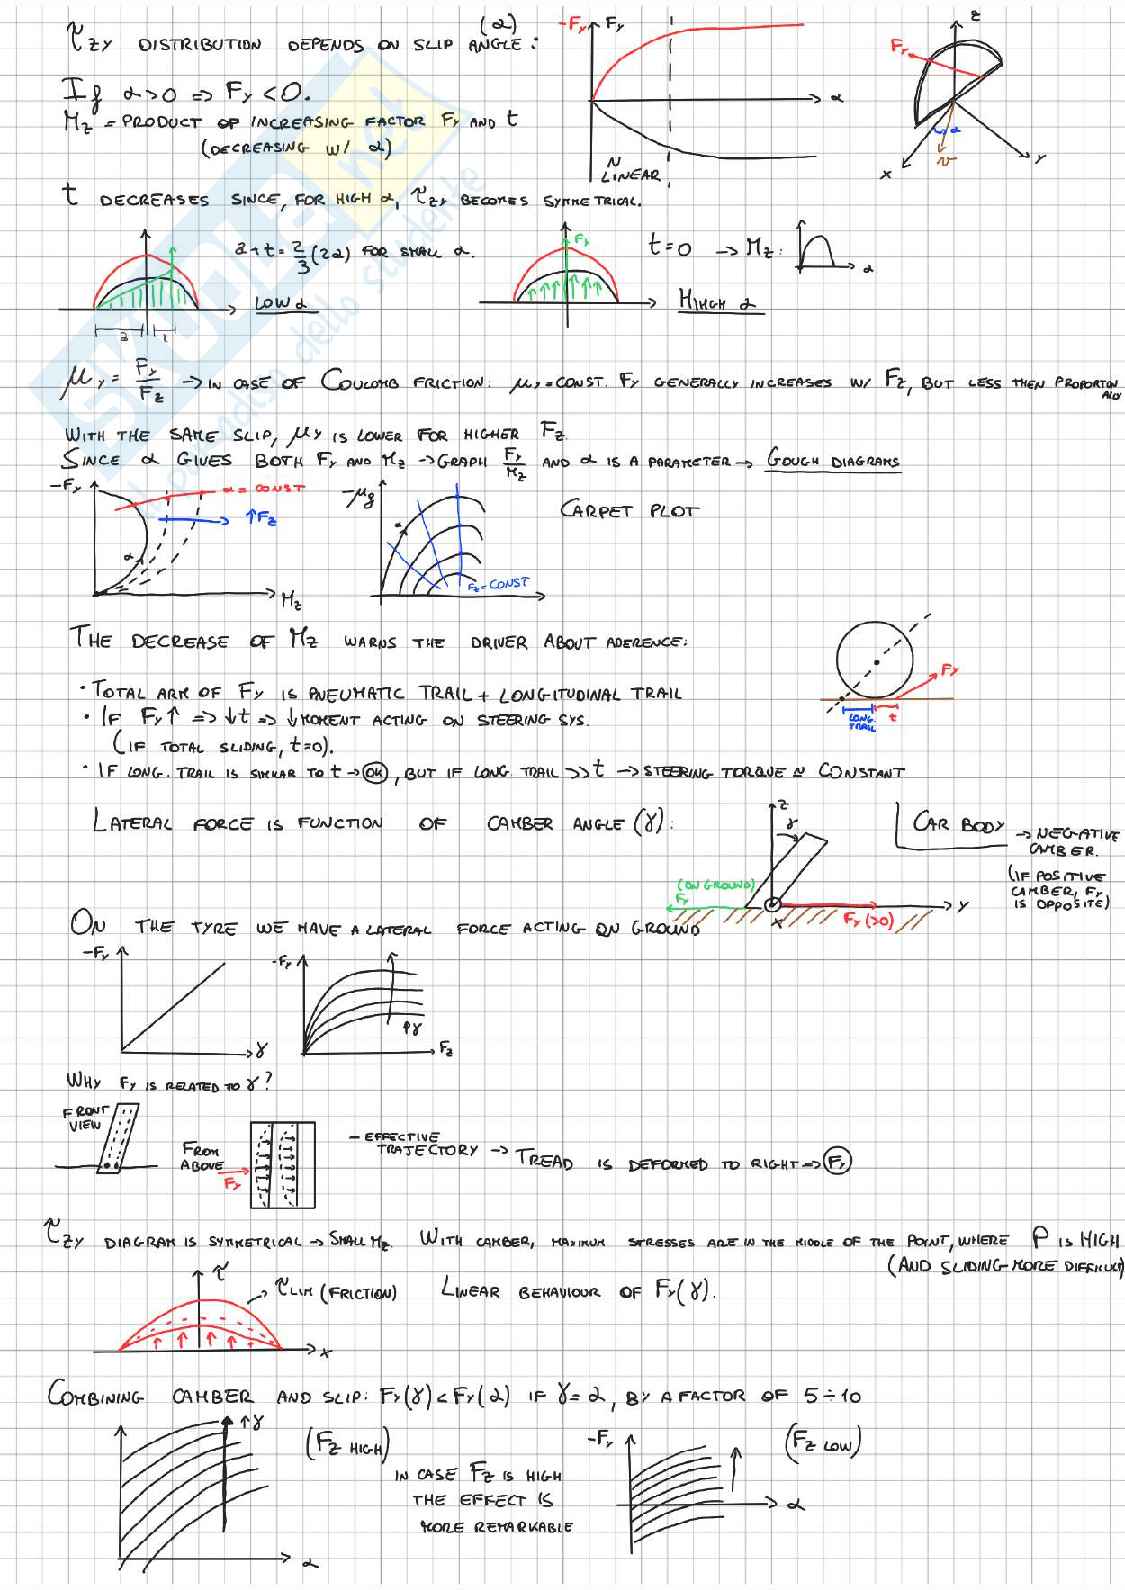 τzy DISTRIBUTION DEPENDS ON SLIP ANGLE (α):
-Fy Fy
α
N LINEAR
z
Fy
α
N
x
y
If α>0 => Fy<0.
Mz = PRODUCT OF INCREASING FACTOR Fy AND t
(DECREASING W/ α)
t DECREASES SINCE, FOR HIGH α, τzy BECOMES SYMMETRICAL.
a+t = 2/3 (2a) FOR SMALL α.
LOW α
a
t
Fy
t=0 → Mz:
α
HIHGH α
μy = Fy/Fz → IN CASE OF COULOMB FRICTION: μy=CONST. Fy GENERALLY INCREASES W/ Fz, BUT LESS THEN PROPORTION
ALLY
WITH THE SAME SLIP, μy IS LOWER FOR HIGHER Fz.
SINCE α GIVES BOTH Fy AND Mz → GRAPH Fy/Mz AND α IS A PARAMETER → GOUGH DIAGRAMS
-Fy
α=CONST
↑Fz
α
Mz
-μy
α
Fz=CONST
CARPET PLOT
THE DECREASE OF Mz WARNS THE DRIVER ABOUT ADERENCE:
· TOTAL ARM OF Fy IS PNEUMATIC TRAIL + LONGITUDINAL TRAIL
· IF Fy↑ => ↓t => ↓MOMENT ACTING ON STEERING SYS.
(IF TOTAL SLIDING, t=0).
· IF LONG. TRAIL IS SIMILAR TO t → OK, BUT IF LONG TRAIL >> t → STEERING TORQUE ≈ CONSTANT
Fy
LONG. TRAIL
t
LATERAL FORCE IS FUNCTION OF CAMBER ANGLE (γ):
z
γ
(ON GROUND)
Fy
x
Fy (>0)
y
CAR BODY → NEGATIVE CAMBER.
(IF POSITIVE CAMBER, Fy IS OPPOSITE)
ON THE TYRE WE HAVE A LATERAL FORCE ACTING ON GROUND
-Fy
γ
-Fy
↑γ
Fz
WHY Fy IS RELATED TO γ?
FRONT VIEW
FROM ABOVE
Fy
- EFFECTIVE TRAJECTORY → TREAD IS DEFORMED TO RIGHT → Fy
τzy DIAGRAM IS SYMMETRICAL → SMALL Mz. WITH CAMBER, MAXIMUM STRESSES ARE IN THE MIDDLE OF THE POINT, WHERE P IS HIGH
(AND SLIDING MORE DIFFICULT)
τ
τLIM (FRICTION)
x
LINEAR BEHAVIOUR OF Fy(γ).
COMBINING CAMBER AND SLIP: Fy(γ) < Fy(α) IF γ=α, BY A FACTOR OF 5÷10
↑γ
(Fz HIGH)
α
IN CASE Fz IS HIGH
THE EFFECT IS
MORE REMARKABLE
-Fy
(Fz LOW)
α